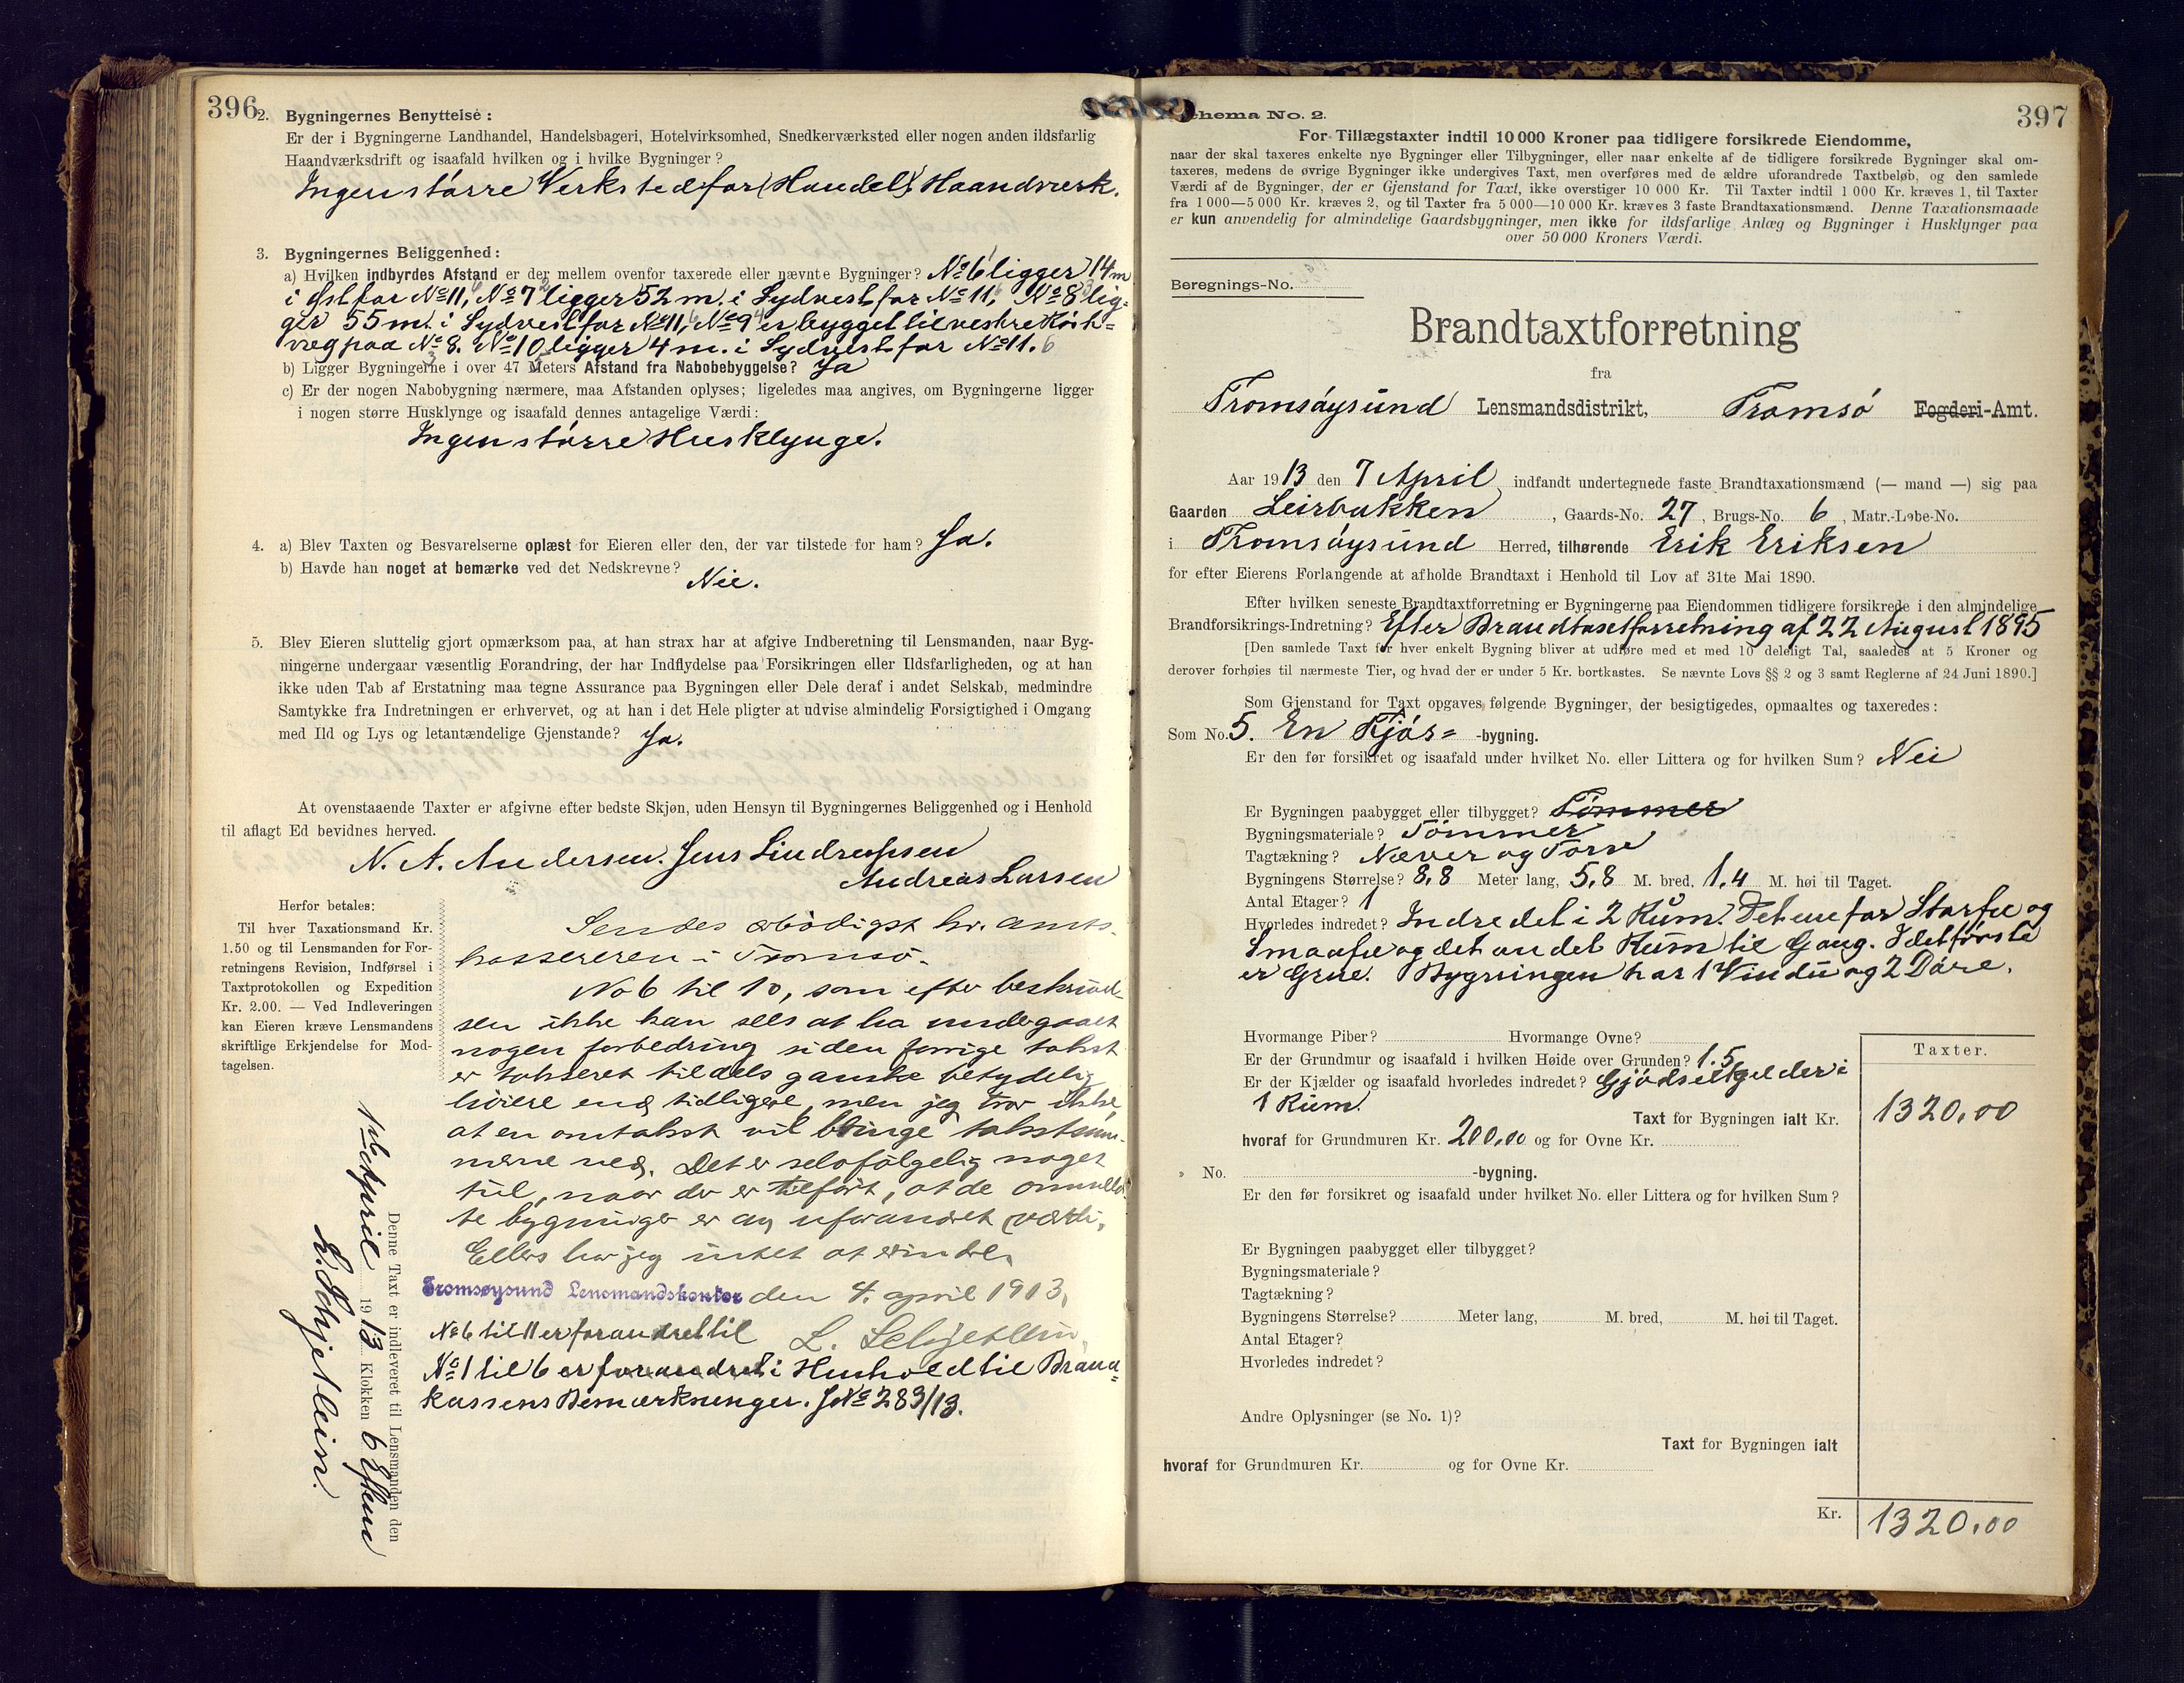 396
2. Bygningernes Benyttelse:
Er der i Bygningerne Landhandel, Handelsbageri, Hotelvirksomhed, Snedkerværksted eller nogen anden ildsfarlig
Haandværksdrift og isaafald hvilken og i hvilke Bygninger?
Ingen større Verksted for (Handel) Haandverk.
3. Bygningernes Beliggenhed:
a) Hvilken indbyrdes Afstand er der mellem ovenfor taxerede eller nævnte Bygninger? No 6 ligger 14 m
i Øst for No 11, No 7 ligger 52 m. i Sydvest for No 11, No 8 lig=
ger 55 m. i Sydvest for No 11, No 9 er bygget til vestre
væg paa No 8. No 10 ligger 4 m. i Sydvest for No 11. 6
b) Ligger Bygningerne i over 47 Meters Afstand fra Nabobebyggelse? Ja
c) Er der nogen Nabobygning nærmere, maa Afstanden oplyses; ligeledes maa angives, om Bygningerne ligger
i nogen større Husklynge og isaafald dennes antagelige Værdi:
Ingen større Husklynge.
4. a) Blev Taxten og Besvarelserne oplæst for Eieren eller den, der var tilstede for ham? Ja.
b) Havde han noget at bemærke ved det Nedskrevne?
Nei.
5. Blev Eieren sluttelig gjort opmærksom paa, at han strax har at afgive Indberetning til Lensmanden, naar Byg-
ningerne undergaar væsentlig Forandring, der har Indflydelse paa Forsikringen eller Ildsfarligheden, og at han
ikke uden Tab af Erstatning maa tegne Assurance paa Bygningen eller Dele deraf i andet Selskab, medmindre
Samtykke fra Indretningen er erhvervet, og at han i det Hele pligter at udvise almindelig Forsigtighed i Omgang
med Ild og Lys og letantændelige Gjenstande? Ja.
At ovenstaaende Taxter er afgivne efter bedste Skjøn, uden Hensyn til Bygningernes Beliggenhed og i Henhold
til aflagt Ed bevidnes herved.
N. A. Andersen. Jens Lindrupsen
Andreas Larsen
Herfor betales:
Til hver Taxationsmand Kr.
1.50 og til Lensmanden for For-
retningens Revision, Indførsel i
Taxtprotokollen og Expedition
Kr. 2.00. — Ved Indleveringen
kan Eieren kræve Lensmandens
skriftlige Erkjendelse for Mod-
tagelsen.
Sendes ærbødigst hr. amts-
kassereren i Tromsø.
No 6 til 10, som efter beskrivel-
sen ikke kan sees at ha undergaaet
nogen forbedring siden forrige takst
er takseret tildels ganske betydelig
høiere end tidligere, men jeg tror ikke,
at en omtakst vil bringe takstsum-
mene ned. Det er selvfølgelig noget
til, naar der er tilført, at de ommeld-
te bygninger er av uforandret værdi.
Ellers har jeg intet at erindre.
Tromsøysund Lensmandskontor den 4. april 1913.
L. Selgjetlein.
No 6 til 11 er forandret til
No 1 til 6 er forandret i Henhold til Brand=
kassens Bemærkninger. J No 283/13.
Denne Taxt er indleveret til Lensmanden den
1ste April 1913 Klokken 6 Efterm
397
Schema No. 2.
For Tillægstaxter indtil 10 000 Kroner paa tidligere forsikrede Eiendomme,
naar der skal taxeres enkelte nye Bygninger eller Tilbygninger, eller naar enkelte af de tidligere forsikrede Bygninger skal om-
taxeres, medens de øvrige Bygninger ikke undergives Taxt, men overføres med de ældre uforandrede Taxtbeløb, og den samlede
Værdi af de Bygninger, der er Gjenstand for Taxt, ikke overstiger 10 000 Kr. Til Taxter indtil 1 000 Kr. kræves 1, til Taxter
fra 1 000—5 000 Kr. kræves 2, og til Taxter fra 5 000—10 000 Kr. kræves 3 faste Brandtaxationsmænd. Denne Taxationsmaade
er kun anvendelig for almindelige Gaardsbygninger, men ikke for ildsfarlige Anlæg og Bygninger i Husklynger paa
over 50 000 Kroners Værdi.
Beregnings-No.
Brandtaxtforretning
fra
Tromsøysund Lensmandsdistrikt, Tromsø Fogderi-Amt.
Aar 1913 den 7 April indfandt undertegnede faste Brandtaxationsmænd (— mand —) sig paa
Gaarden Leirbakken, Gaards-No. 27, Brugs-No. 6, Matr.-Løbe-No.
i Tromsøysund Herred, tilhørende Erik Eriksen
for efter Eierens Forlangende at afholde Brandtaxt i Henhold til Lov af 31te Mai 1890.
Efter hvilken seneste Brandtaxtforretning er Bygningerne paa Eiendommen tidligere forsikrede i den almindelige
Brandforsikrings-Indretning? Efter Brandtaxtforretning af 22 August 1895
[Den samlede Taxt for hver enkelt Bygning bliver at udføre med et med 10 deleligt Tal, saaledes at 5 Kroner og
derover forhøies til nærmeste Tier, og hvad der er under 5 Kr. bortkastes. Se nævnte Lovs §§ 2 og 3 samt Reglerne af 24 Juni 1890.]
Som Gjenstand for Taxt opgaves følgende Bygninger, der besigtigedes, opmaaltes og taxeredes:
Som No. 5. En Fjøs= -bygning.
Er den før forsikret og isaafald under hvilket No. eller Littera og for hvilken Sum? Nei
Er Bygningen paabygget eller tilbygget? Tømmer
Bygningsmateriale? Tømmer
Tagtækning? Næver og Torv
Bygningens Størrelse? 8,8 Meter lang, 5,8 M. bred, 1,4 M. høi til Taget.
Antal Etager? 1
Hvorledes indredet? Indredet i 2 Rum. Det ene for Storfæ og
Smaafæ og det andet Rum til Gang. I det første
er Grue. Bygningen har 1 Vindu og 2 Døre.
Hvormange Piber? Hvormange Ovne?
Er der Grundmur og isaafald i hvilken Høide over Grunden? 1.5
Er der Kjælder og isaafald hvorledes indredet? Gjødselkjelder i
1 Rum.
Taxter.
Taxt for Bygningen ialt Kr. 1320,00
hvoraf for Grundmuren Kr. 200,00 og for Ovne Kr.
» No. -bygning.
Er den før forsikret og isaafald under hvilket No. eller Littera og for hvilken Sum?
Er Bygningen paabygget eller tilbygget?
Bygningsmateriale?
Tagtækning?
Bygningens Størrelse? Meter lang, M. bred, M. høi til Taget.
Antal Etager?
Hvorledes indredet?
Andre Oplysninger (se No. 1)?
Taxt for Bygningen ialt
hvoraf for Grundmuren Kr. og for Ovne Kr.
Kr. 1320,00